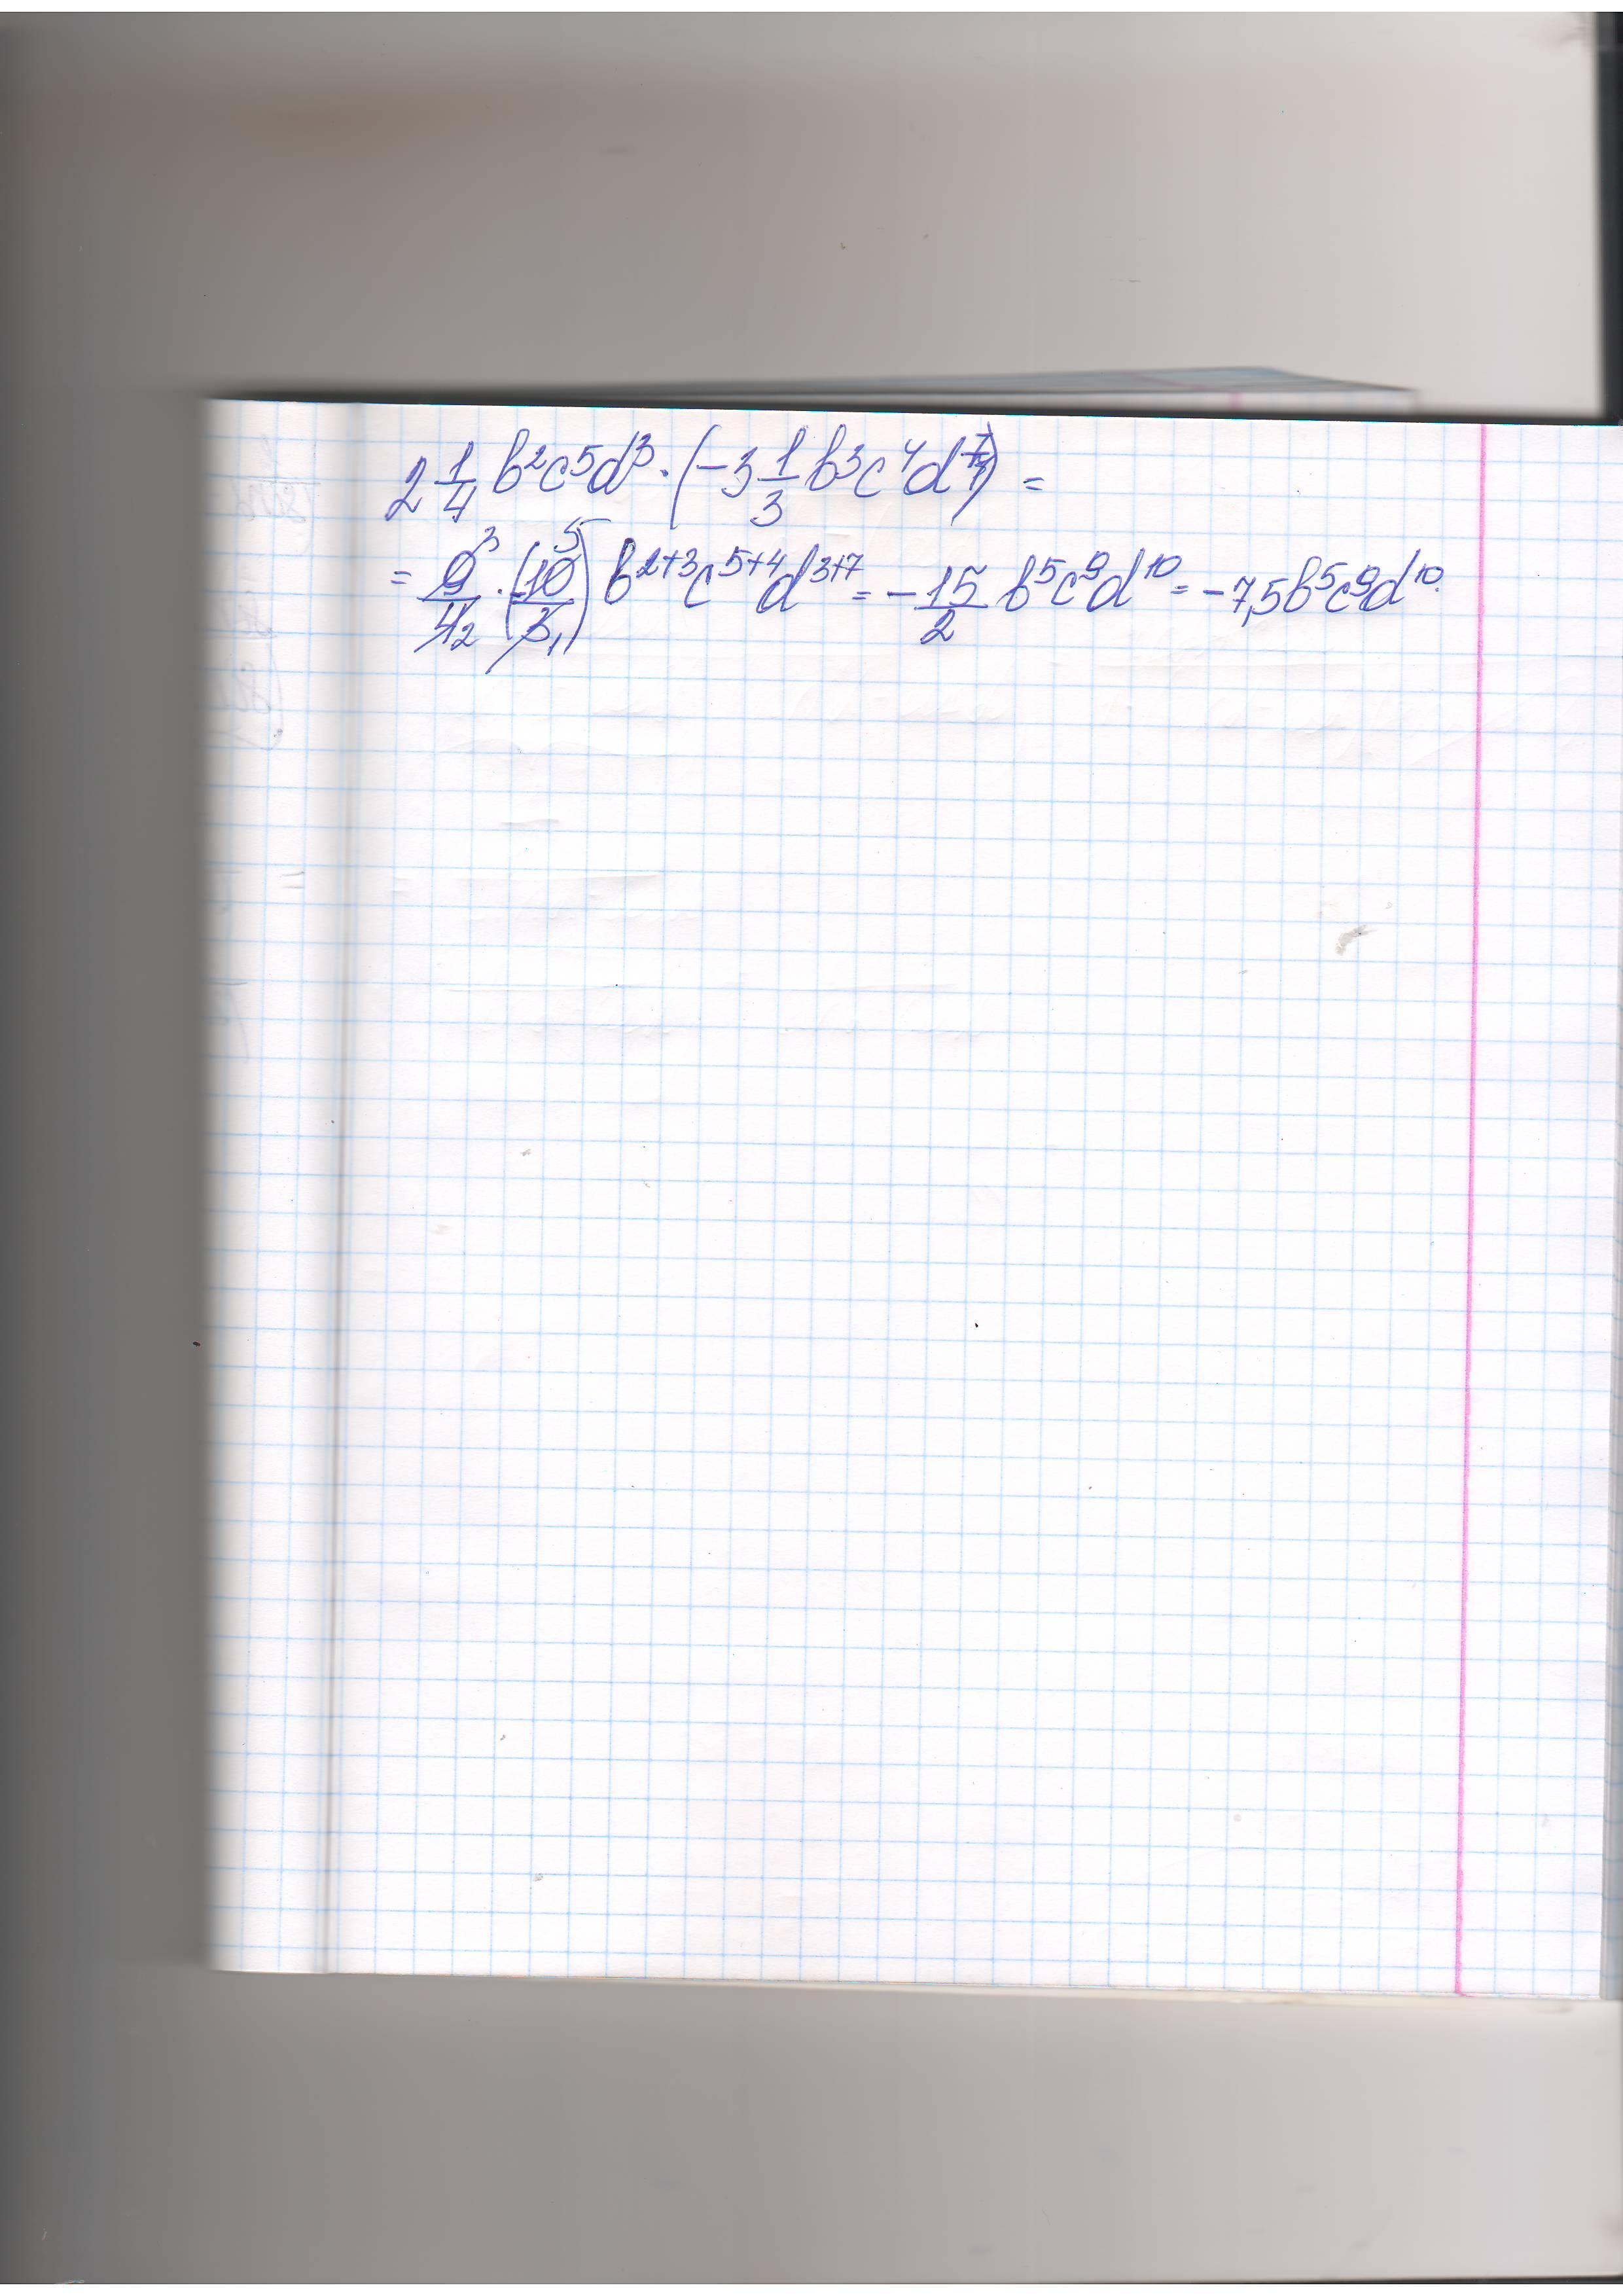 2 1/4 b²c⁵d³ · (−3 1/3 b³c⁴d⁷) =
= 9³/4₂ · (−10⁵/3₁) b²⁺³c⁵⁺⁴d³⁺⁷ = − 15/2 b⁵c⁹d¹⁰ = −7,5b⁵c⁹d¹⁰.